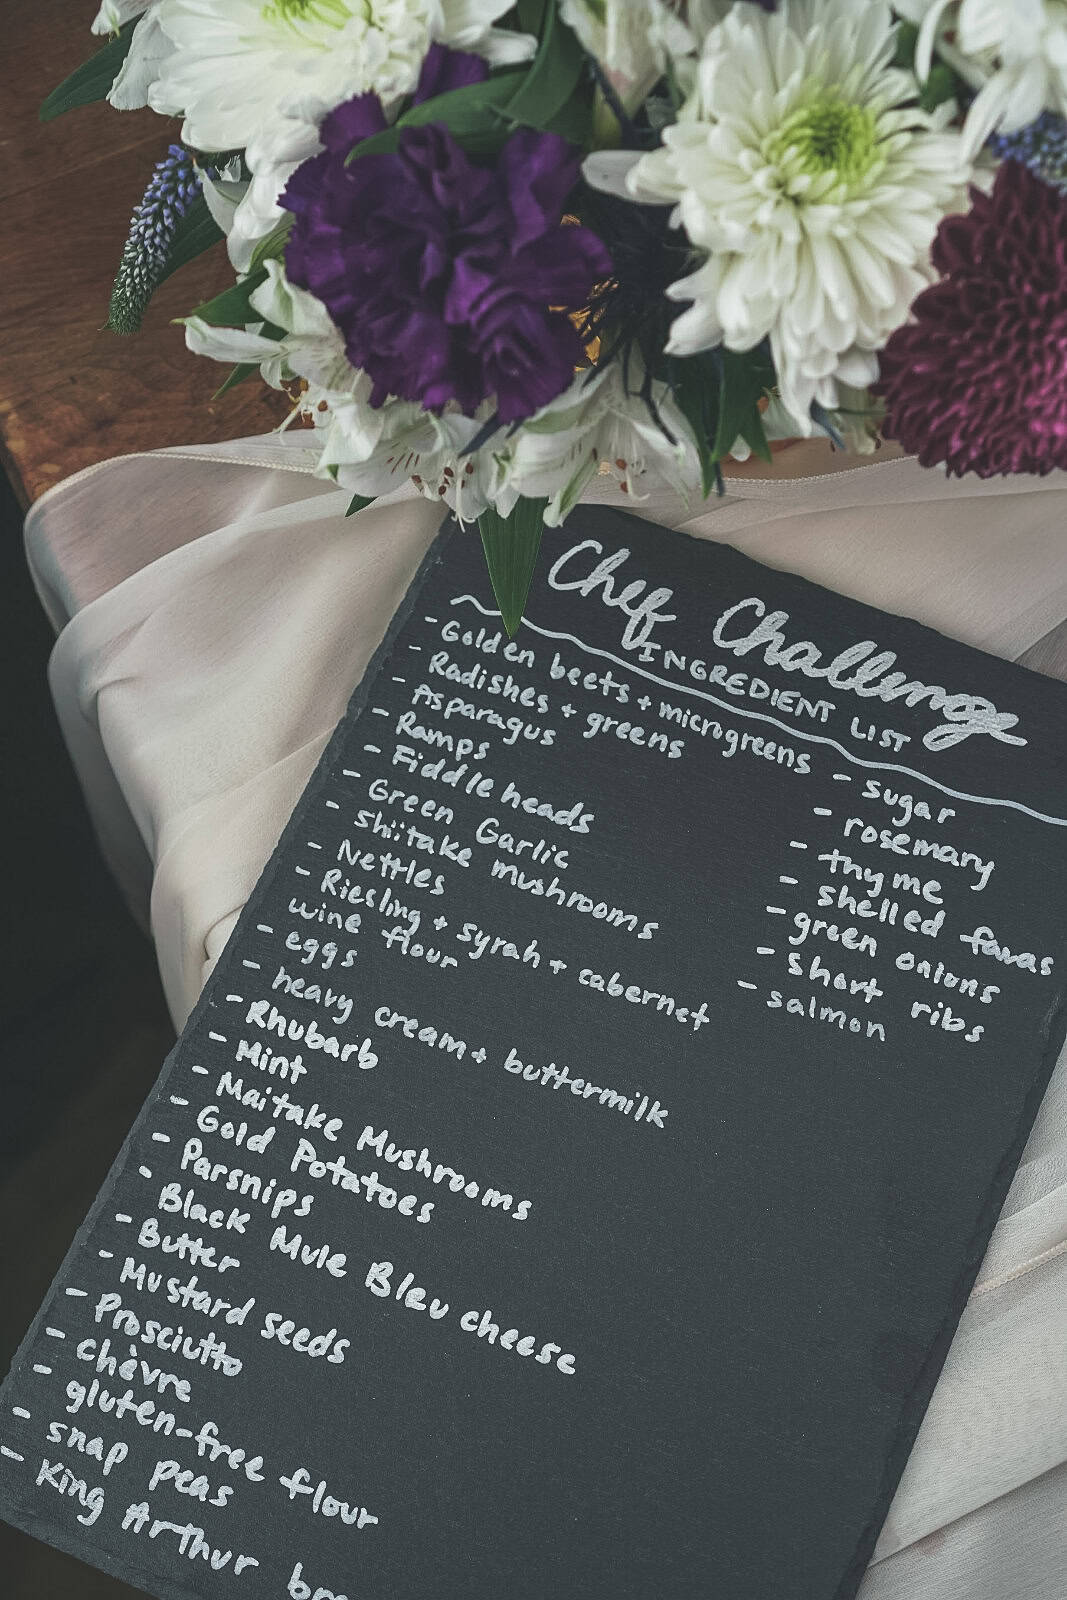 Chef Challenge
INGREDIENT LIST
- Golden beets + microgreens
- Radishes + greens
- Asparagus
- Ramps
- Fiddleheads
- Green Garlic
- Shiitake mushrooms
- Nettles
- Riesling + syrah + cabernet
wine flour
- eggs
- heavy cream + buttermilk
- Rhubarb
- Mint
- Maitake Mushrooms
- Gold Potatoes
- Parsnips
- Black Mule Bleu cheese
- Butter
- Mustard seeds
- Prosciutto
- chèvre
- gluten-free flour
- snap peas
- King Arthur
- sugar
- rosemary
- thyme
- shelled favas
- green onions
- short ribs
- salmon